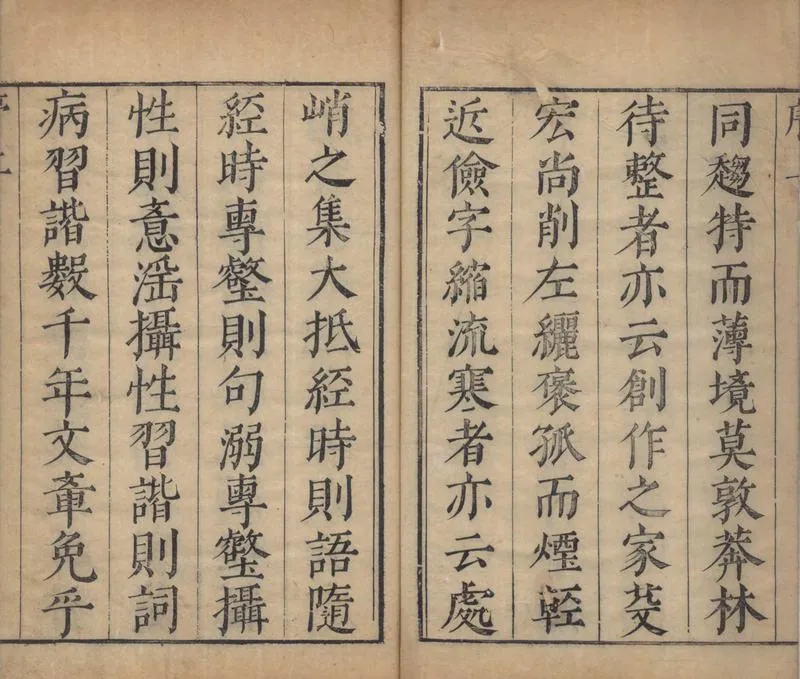 同趨特而薄境莫敦莽林
待整者亦云創作之家芟
宏尚削左纚褒孤而煙輕
近儉字縮流寒者亦云處
峭之集大抵經時則語隨
經時專鑿則句溺專鑿攝
性則意滛攝性習諧則詞
病習諧數千年文章免乎